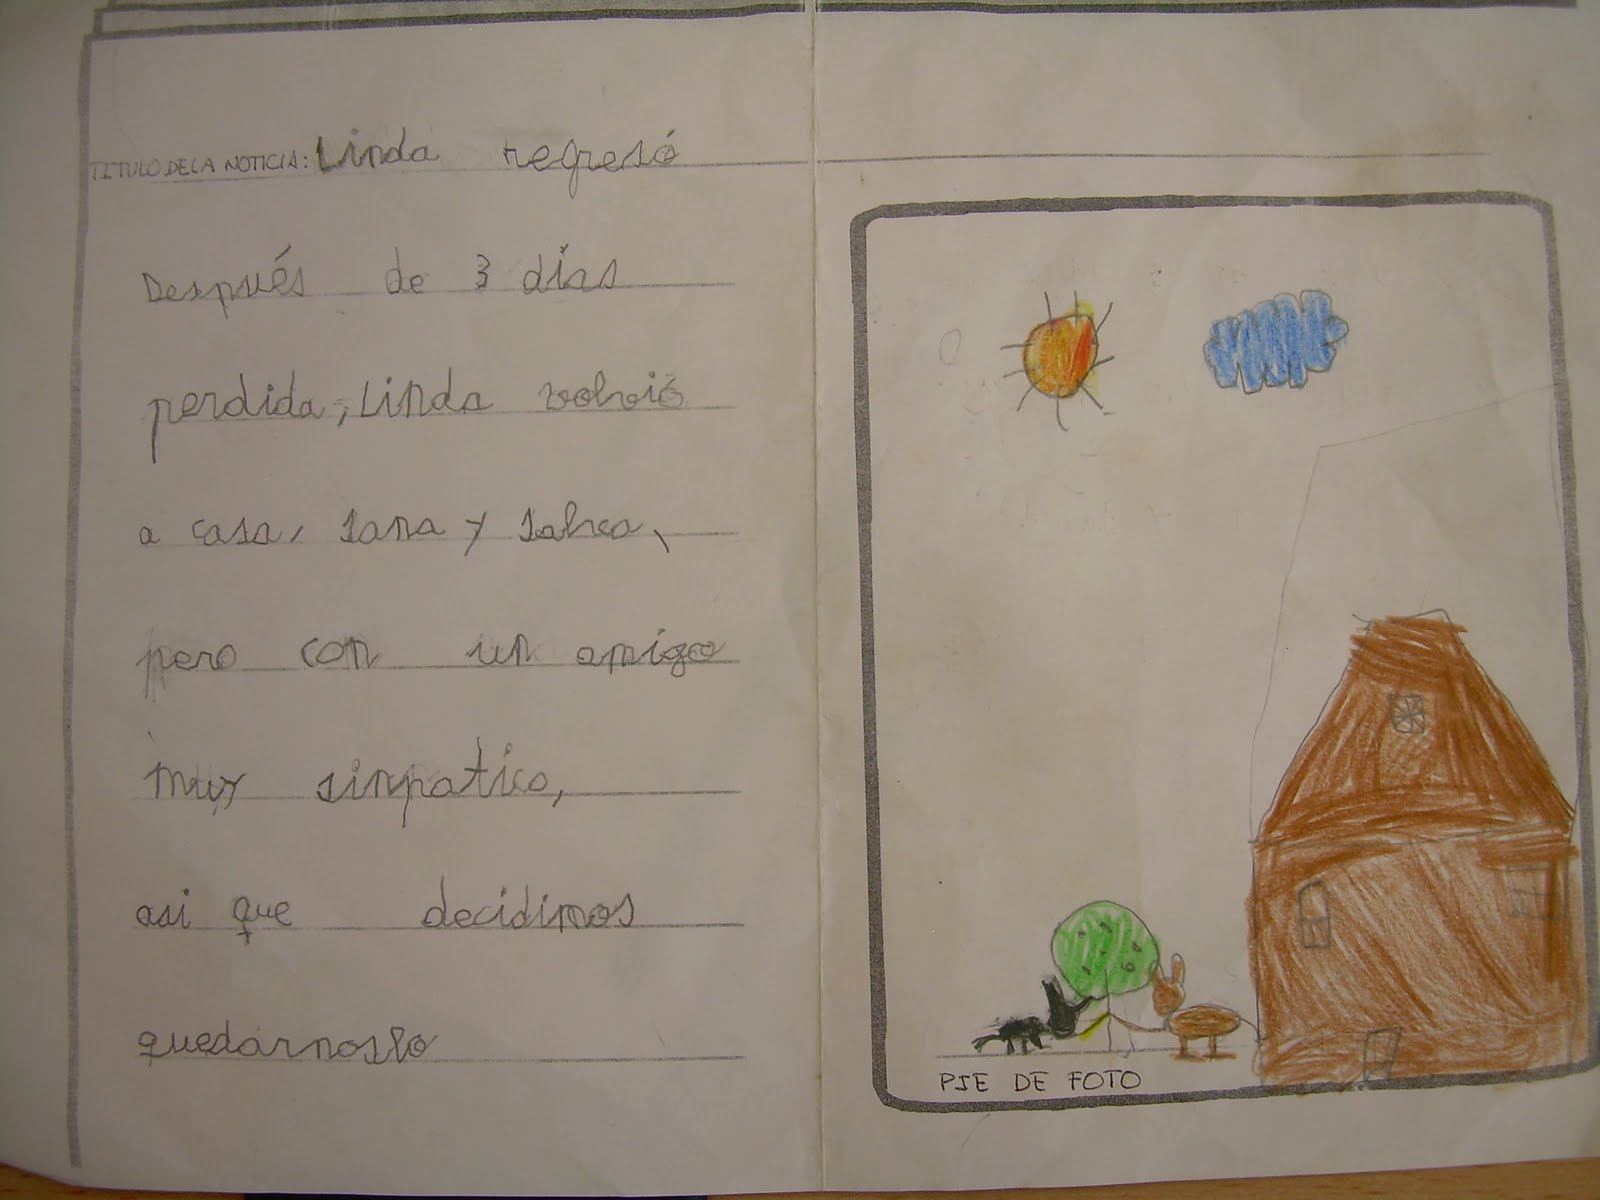 TITULO DE LA NOTICIA: Linda regresó
Después de 3 dias
perdida, Linda volvió
a casa, sana y salva,
pero con un amigo
muy simpatico,
asi que decidimos
quedárnoslo
PIE DE FOTO